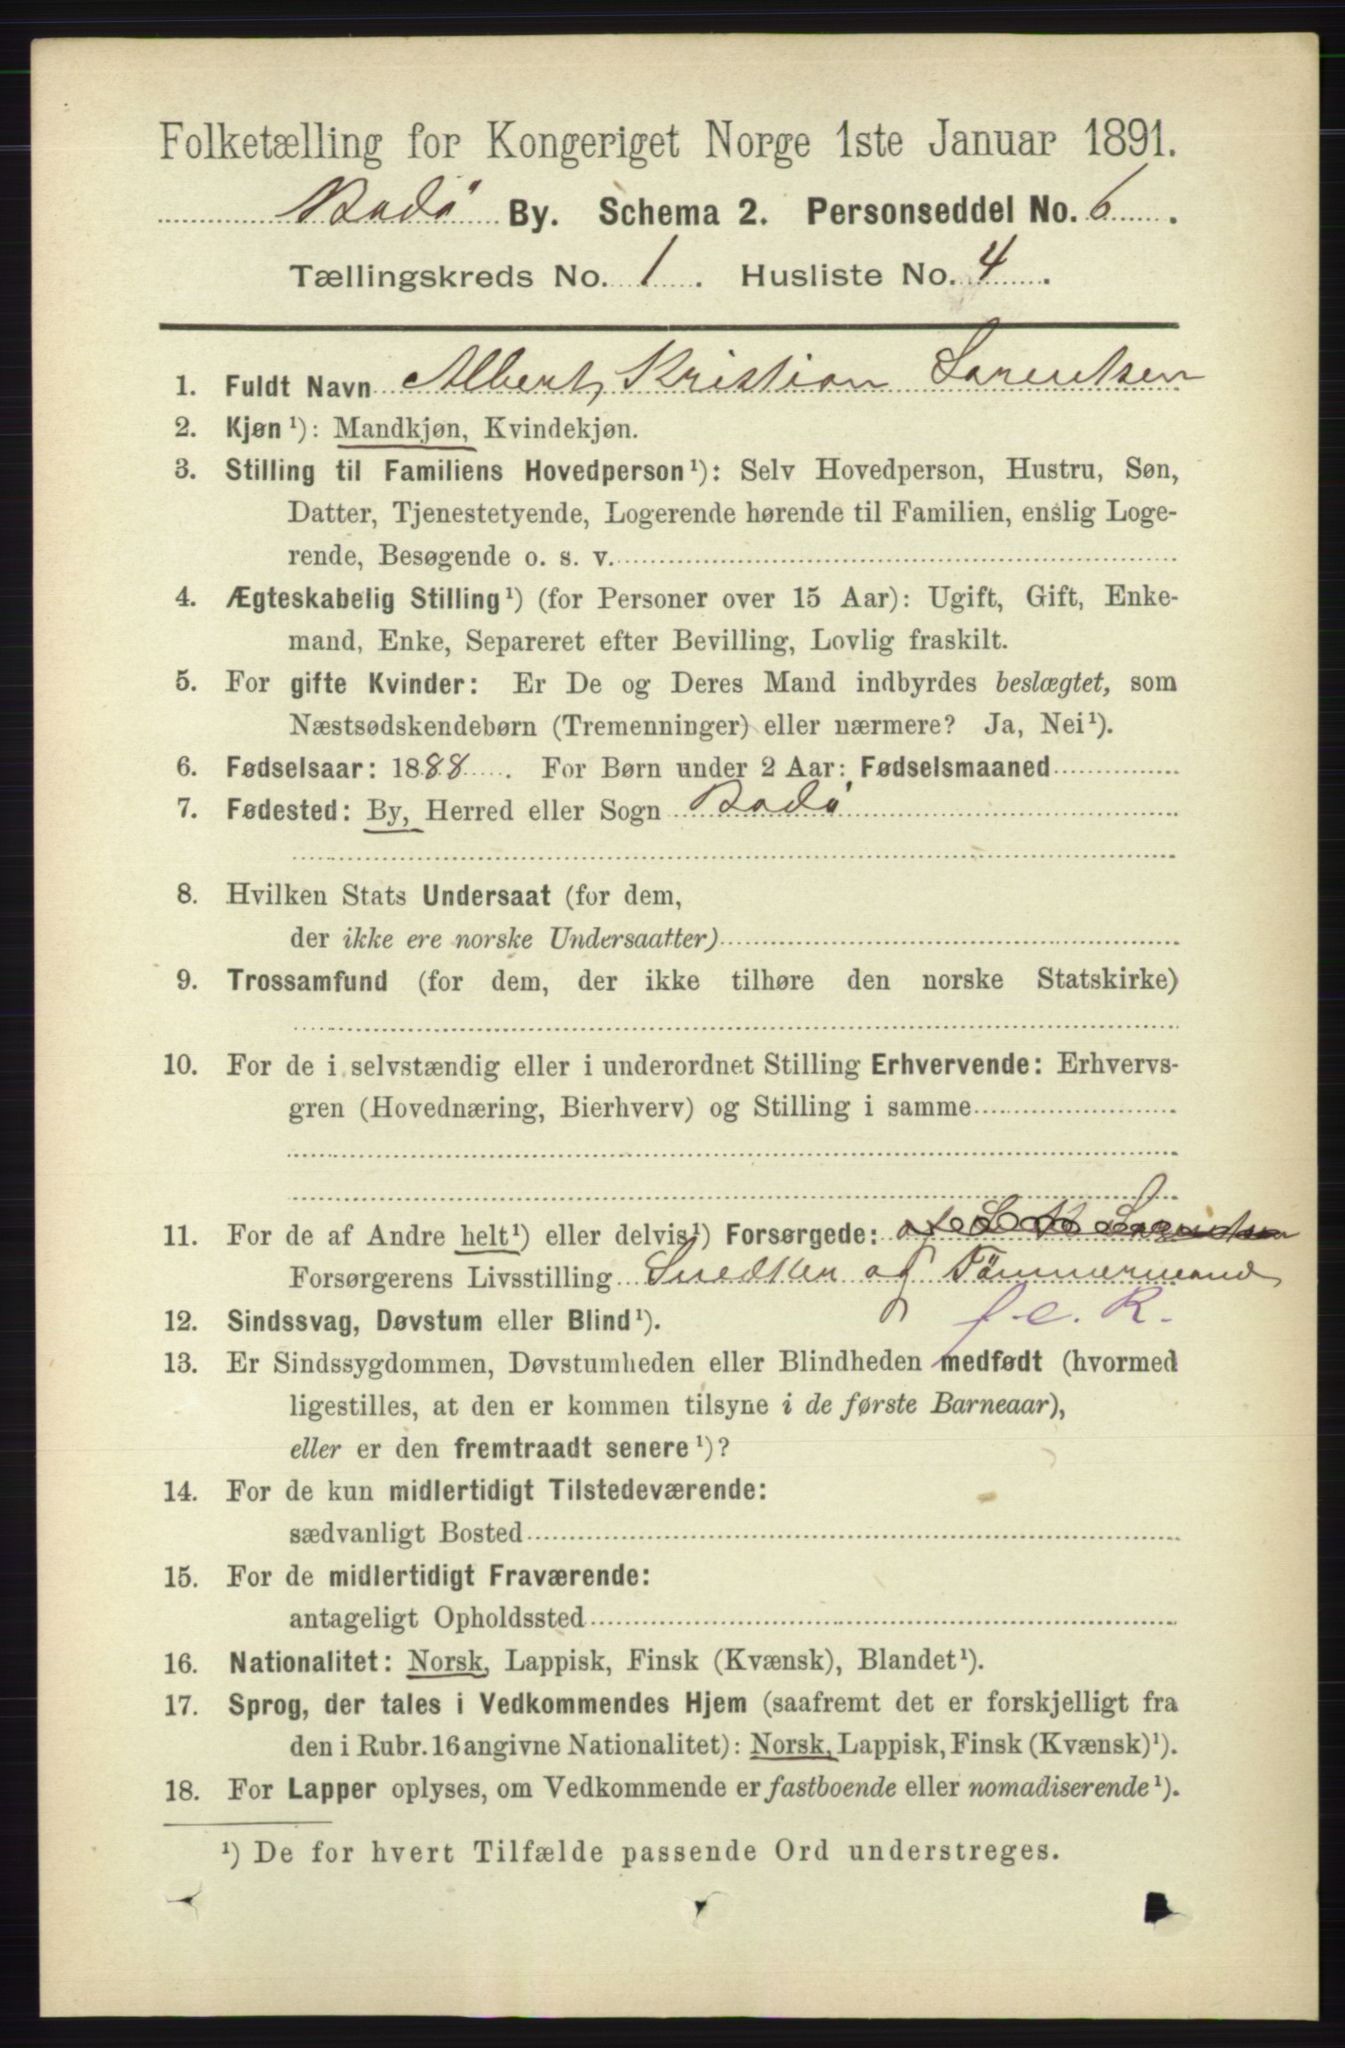 Folketælling for Kongeriget Norge 1ste Januar 1891.
Bodø By. Schema 2. Personseddel No. 6.
Tællingskreds No. 1. Husliste No. 4.
1. Fuldt Navn Albert Kristian Lorentsen
2. Kjøn ¹): Mandkjøn, Kvindekjøn.
3. Stilling til Familiens Hovedperson ¹): Selv Hovedperson, Hustru, Søn,
Datter, Tjenestetyende, Logerende hørende til Familien, enslig Loge-
rende, Besøgende o. s. v.
4. Ægteskabelig Stilling ¹) (for Personer over 15 Aar): Ugift, Gift, Enke-
mand, Enke, Separeret efter Bevilling, Lovlig fraskilt.
5. For gifte Kvinder: Er De og Deres Mand indbyrdes beslægtet, som
Næstsødskendebørn (Tremenninger) eller nærmere? Ja, Nei ¹).
6. Fødselsaar: 1888. For Børn under 2 Aar: Fødselsmaaned
7. Fødested: By, Herred eller Sogn Bodø
8. Hvilken Stats Undersaat (for dem,
der ikke ere norske Undersaatter)
9. Trossamfund (for dem, der ikke tilhøre den norske Statskirke)
10. For de i selvstændig eller i underordnet Stilling Erhvervende: Erhvervs-
gren (Hovednæring, Bierhverv) og Stilling i samme
11. For de af Andre helt ¹) eller delvis ¹) Forsørgede: af Lorentsen
Forsørgerens Livsstilling Snedker og Tömmermand
f. e. R.
12. Sindssvag, Døvstum eller Blind ¹).
13. Er Sindssygdommen, Døvstumheden eller Blindheden medfødt (hvormed
ligestilles, at den er kommen tilsyne i de første Barneaar),
eller er den fremtraadt senere ¹)?
14. For de kun midlertidigt Tilstedeværende:
sædvanligt Bosted
15. For de midlertidigt Fraværende:
antageligt Opholdssted
16. Nationalitet: Norsk, Lappisk, Finsk (Kvænsk), Blandet ¹).
17. Sprog, der tales i Vedkommendes Hjem (saafremt det er forskjelligt fra
den i Rubr. 16 angivne Nationalitet): Norsk, Lappisk, Finsk (Kvænsk) ¹).
18. For Lapper oplyses, om Vedkommende er fastboende eller nomadiserende ¹).
¹) De for hvert Tilfælde passende Ord understreges.